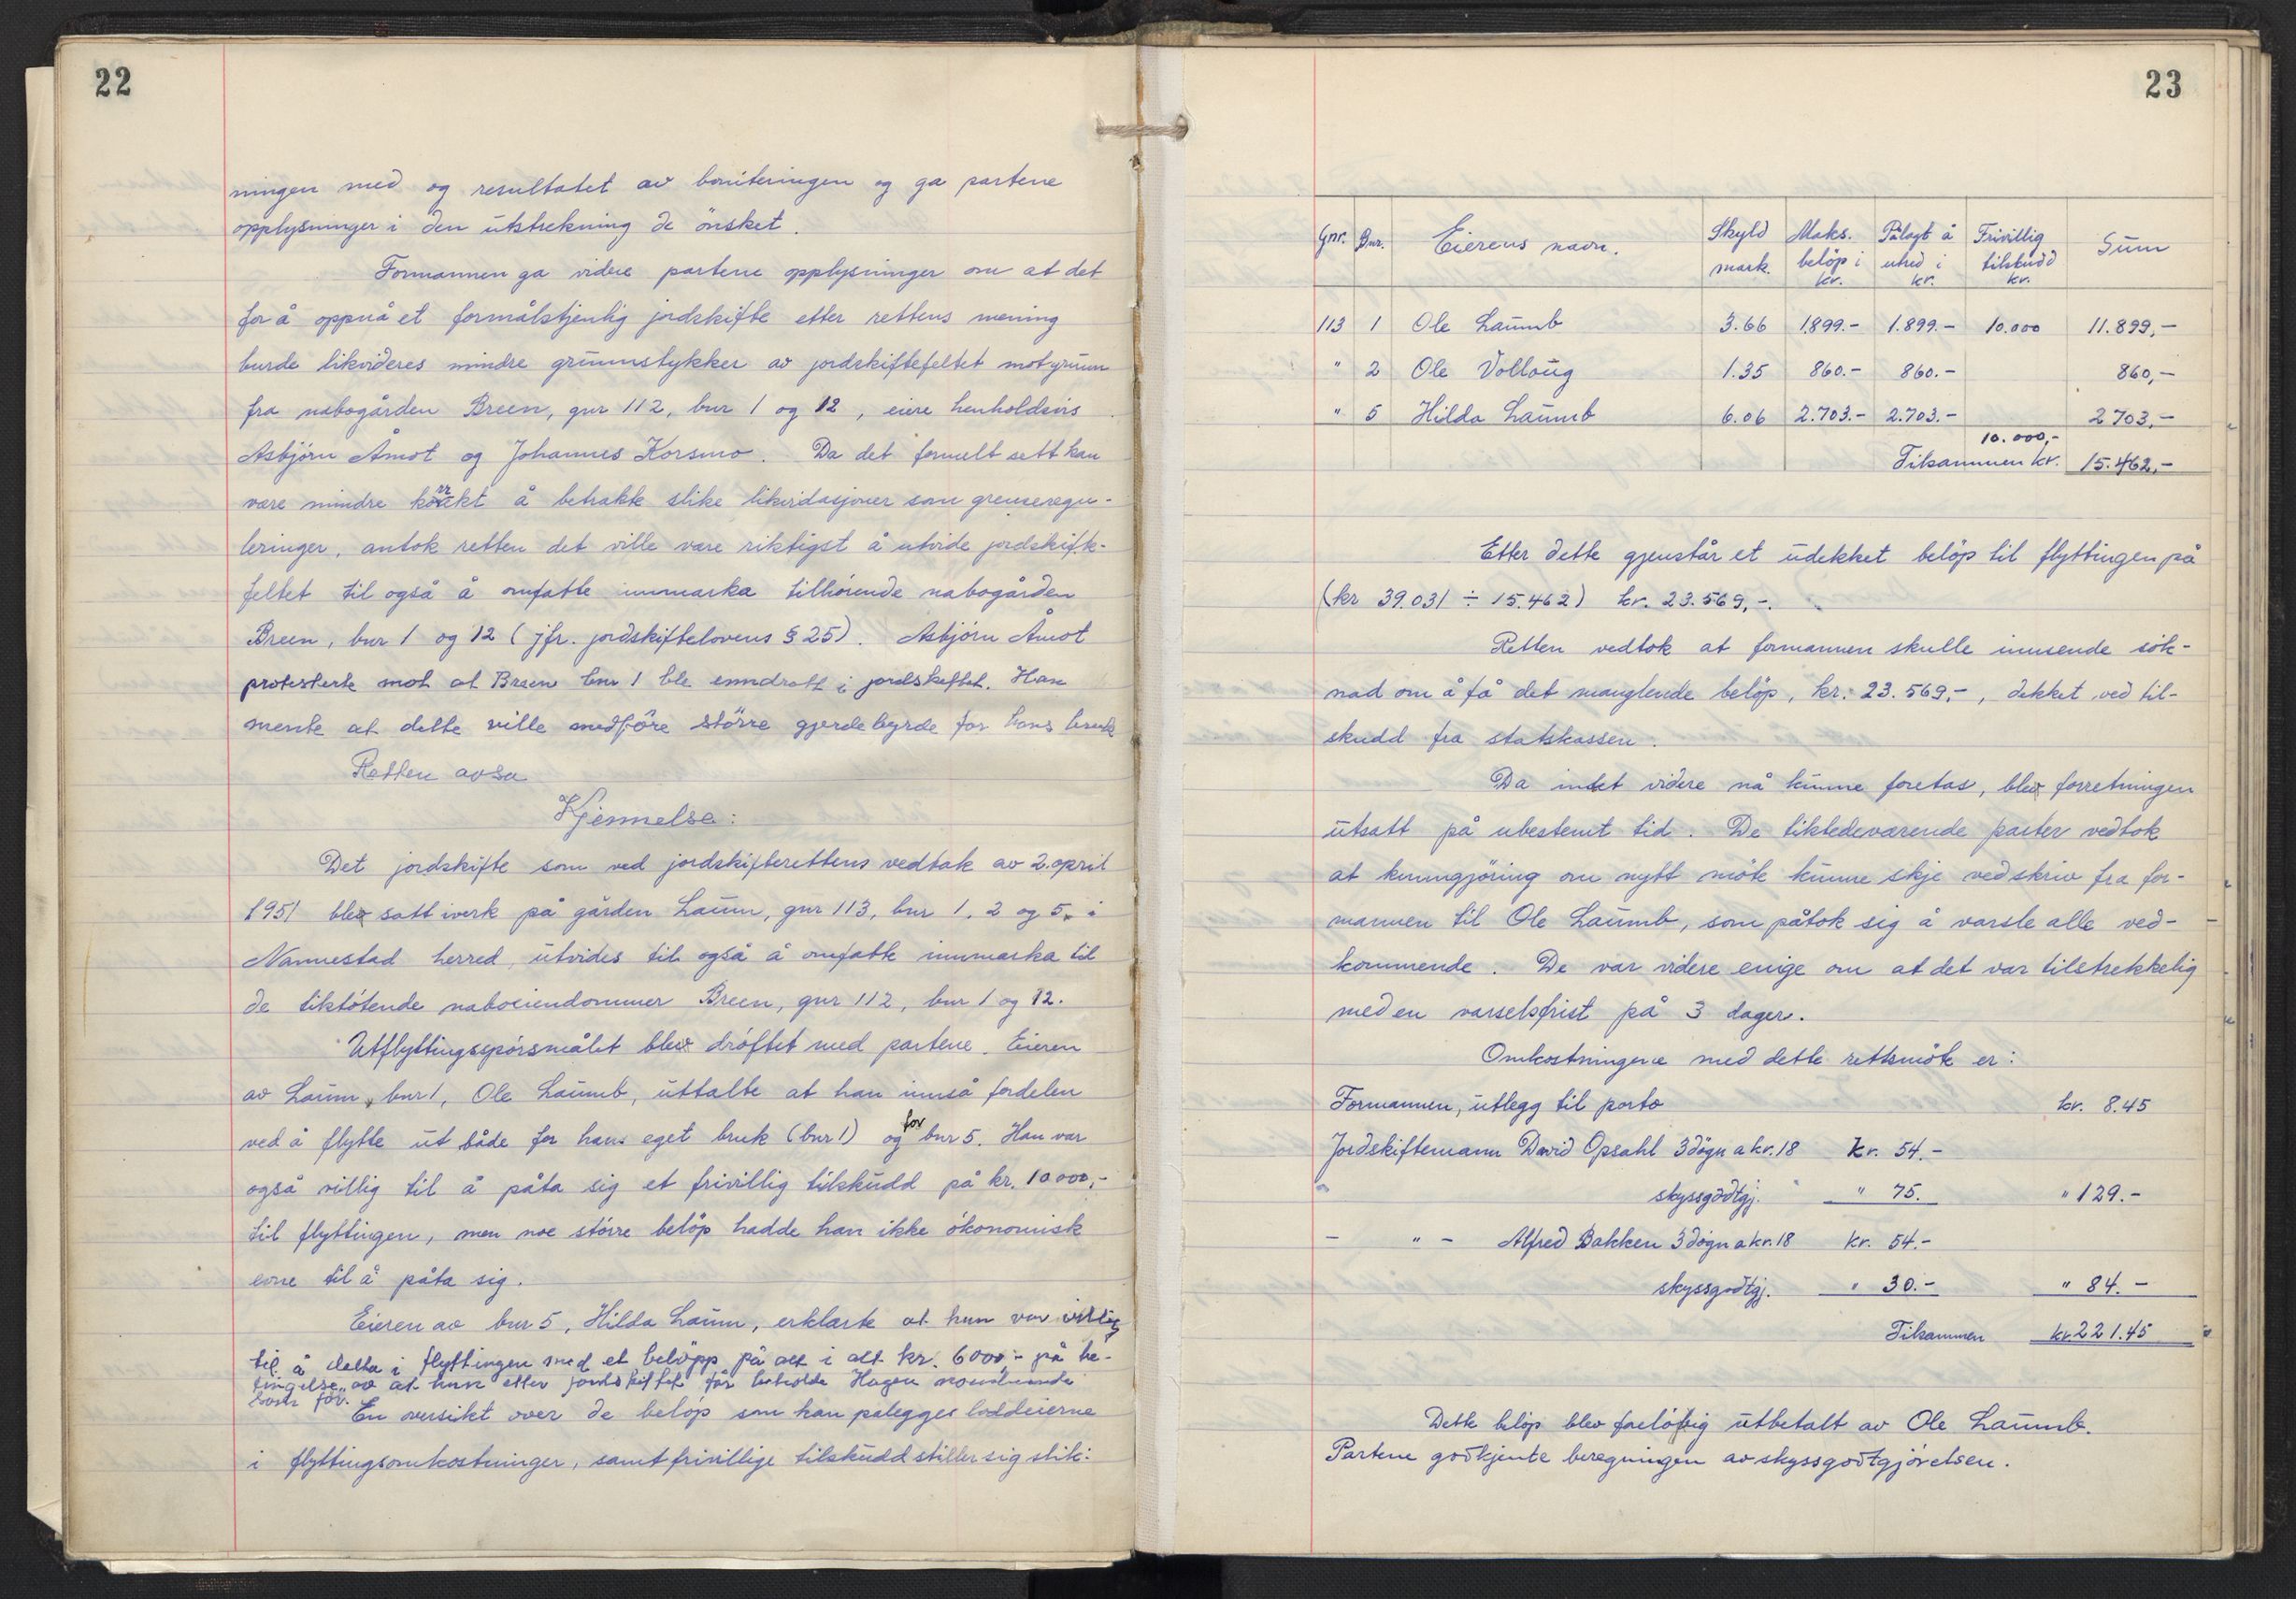 22
ningen med og resultatet av boniteringen og ga partene
opplysninger i den utstrekning de önsket.
Formannen ga videre partene opplysninger om at det
for å oppnå et formålstjenlig jordskifte etter rettens mening
burde likvideres mindre grunnstykker av jordskiftefeltet mot grunn
fra nabogården Breen, gnr 112, bnr 1 og 12, eiere henholdsvis
Asbjörn Åmot og Johannes Korsmo. Da det formelt sett kan
være mindre korrekt å betrakte slike likvidasjoner som grenseregu-
leringer, antok retten det ville være riktigst å utvide jordskifte-
feltet til også å omfatte innmarka tilhörende nabogården
Breen, bnr 1 og 12 (jfr. jordskiftelovens § 25). Asbjörn Åmot
protesterte mot at Breen bnr 1 ble inndratt i jordskiftet. Han
mente at dette ville medföre större gjerdebyrde for hans bruk
Retten avsa
Kjennelse:
Det jordskifte som ved jordskifterettens vedtak av 2. april
1951 blev satt iverk på gården Laum, gnr 113, bnr 1, 2 og 5, i
Nannestad herred, utvides til også å omfatte innmarka til
de tilstötende naboeiendommer Breen, gnr 112, bnr 1 og 12.
Utflyttingsspörsmålet blev dröftet med partene. Eieren
av Laum, bnr 1, Ole Laumb, uttalte at han innså fordelen
ved å flytte ut både for hans eget bruk (bnr 1) og for bnr 5. Han var
også villig til å påta sig et frivillig tilskudd på kr. 10000,-
til flyttingen, men noe större belöp hadde han ikke ökonomisk
evne til å påta sig.
Eieren av bnr 5, Hilda Laum, erklærte at hun var villig
til å delta i flyttingen med et belöpp på alt i alt kr. 6000,- på be-
tingelse av at hun etter jordskiftet får beholde Hagen nouværende
som för.
En oversikt over de belöp som kan pålegges loddeierne
i flyttingsomkostninger, samt frivillige tilskudd stiller sig slik:
23
Gnr. Bnr. Eierens navn. Skyld mark. Maks. belöp i kr. Pålagt å utred i kr. Frivillig tilskudd kr. Sum
113 1 Ole Laumb 3.66 1899.- 1.899.- 10.000 11.899,-
" 2 Ole Vollaug 1.35 860.- 860.- 860,-
" 5 Hilda Laumb 6.06 2.703.- 2.703.- 2703,-
10.000,-
Tilsammen kr. 15.462,-
Etter dette gjenstår et udekket belöp til flyttingen på
(kr 39.031 ÷ 15.462) kr. 23.569,-.
Retten vedtok at formannen skulle innsende sök-
nad om å få det manglende belöp, kr. 23.569,-, dekket ved til-
skudd fra statskassen.
Da intet videre nå kunne foretas, blev forretningen
utsatt på ubestemt tid. De tilstedeværende parter vedtok
at kunngjöring om nytt möte kunne skje ved skriv fra for-
mannen til Ole Laumb, som påtok sig å varsle alle ved-
kommende. De var videre enige om at det var tilstrekkelig
med en varselsfrist på 3 dager.
Omkostningene med dette rettsmöte er:
Formannen, utlegg til porto kr. 8.45
Jordskiftemann David Opsahl 3 dögn a kr. 18 kr. 54.-
" skyssgodtgj. " 75. " 129.-
- " - Alfred Bakken 3 dögn a kr. 18 kr. 54.-
skyssgodtgj. " 30.- " 84.-
Tilsammen kr 221.45
Dette belöp blev forelöbig utbetalt av Ole Laumb.
Partene godkjente beregningen av skyssgodtgjörelsen.